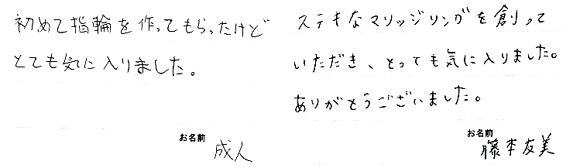 初めて指輪を作ってもらったけど
とても気に入りました。
お名前
成人
ステキなマリッジリングを創って
いただき、とっても気に入りました。
ありがとうございました。
お名前
藤本友美